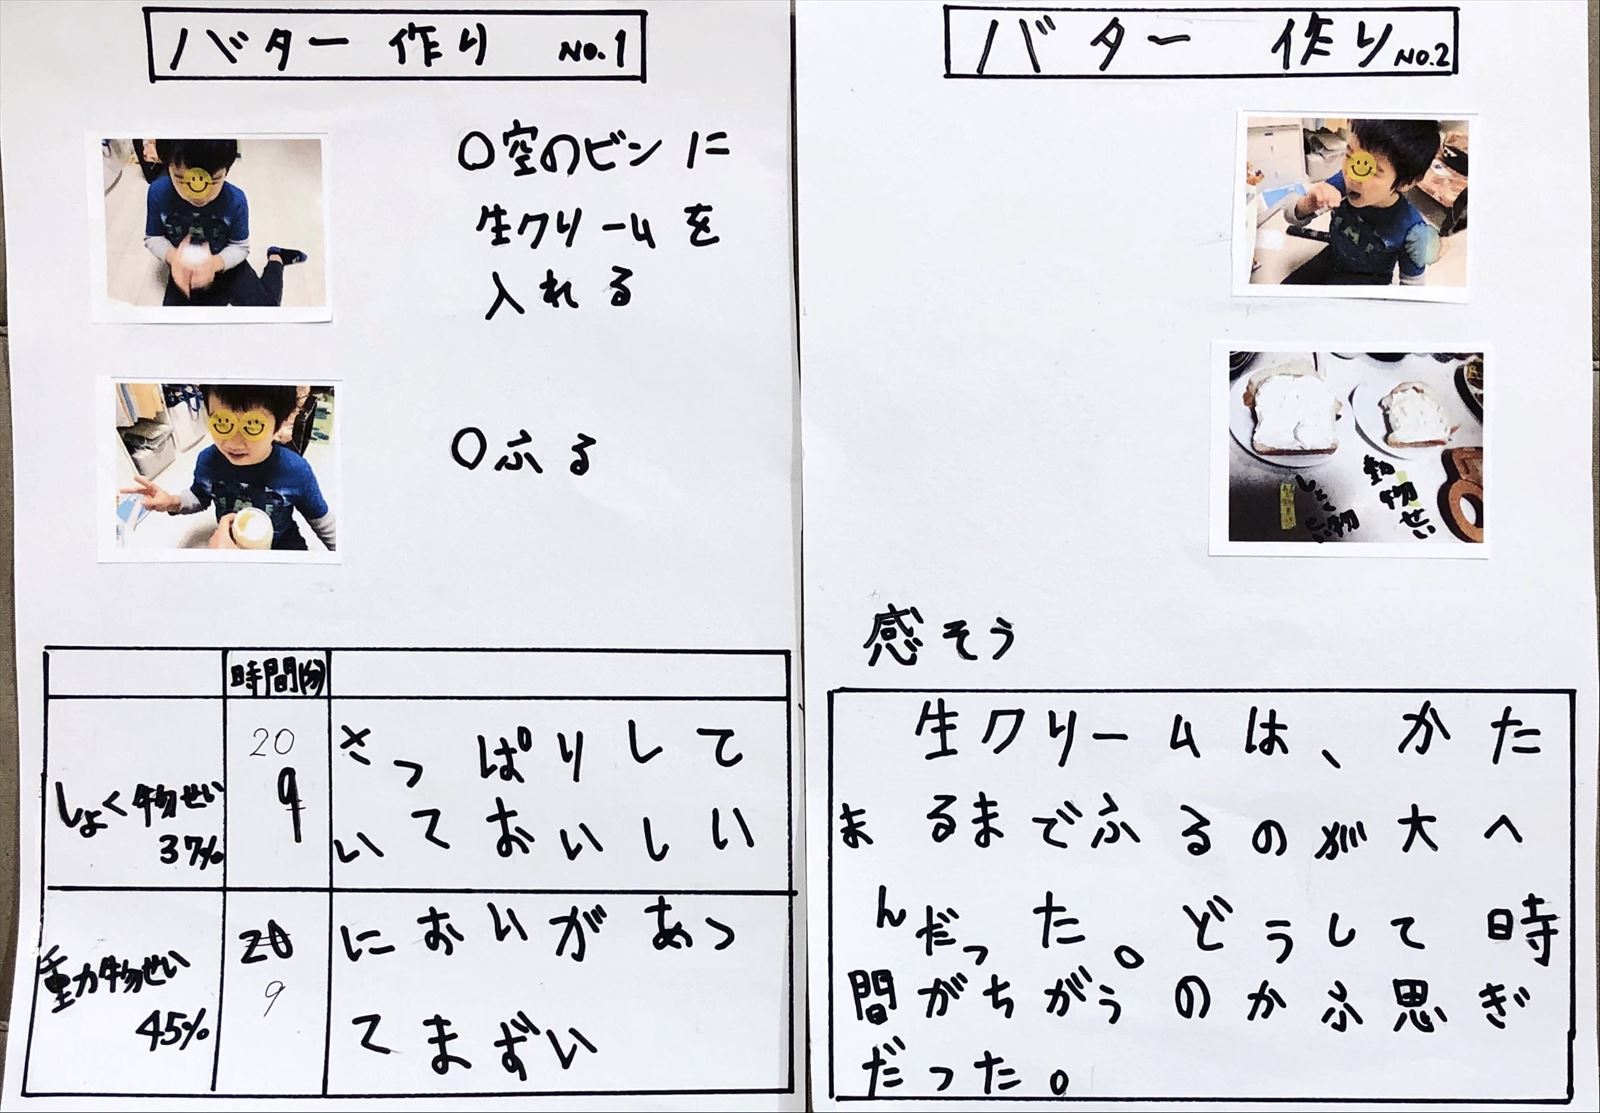 バター作り No.1
○空のビンに
生クリームを
入れる
○ふる
時間(分)
しょく物せい
37%
20
9
さっぱりして
いておいしい
動物せい
45%
20
9
においがあっ
てまずい
バター作り No.2
しょく物
せい
動物せい
感そう
生クリームは、かた
まるまでふるのが大へ
んだった。どうして時
間がちがうのかふ思ぎ
だった。